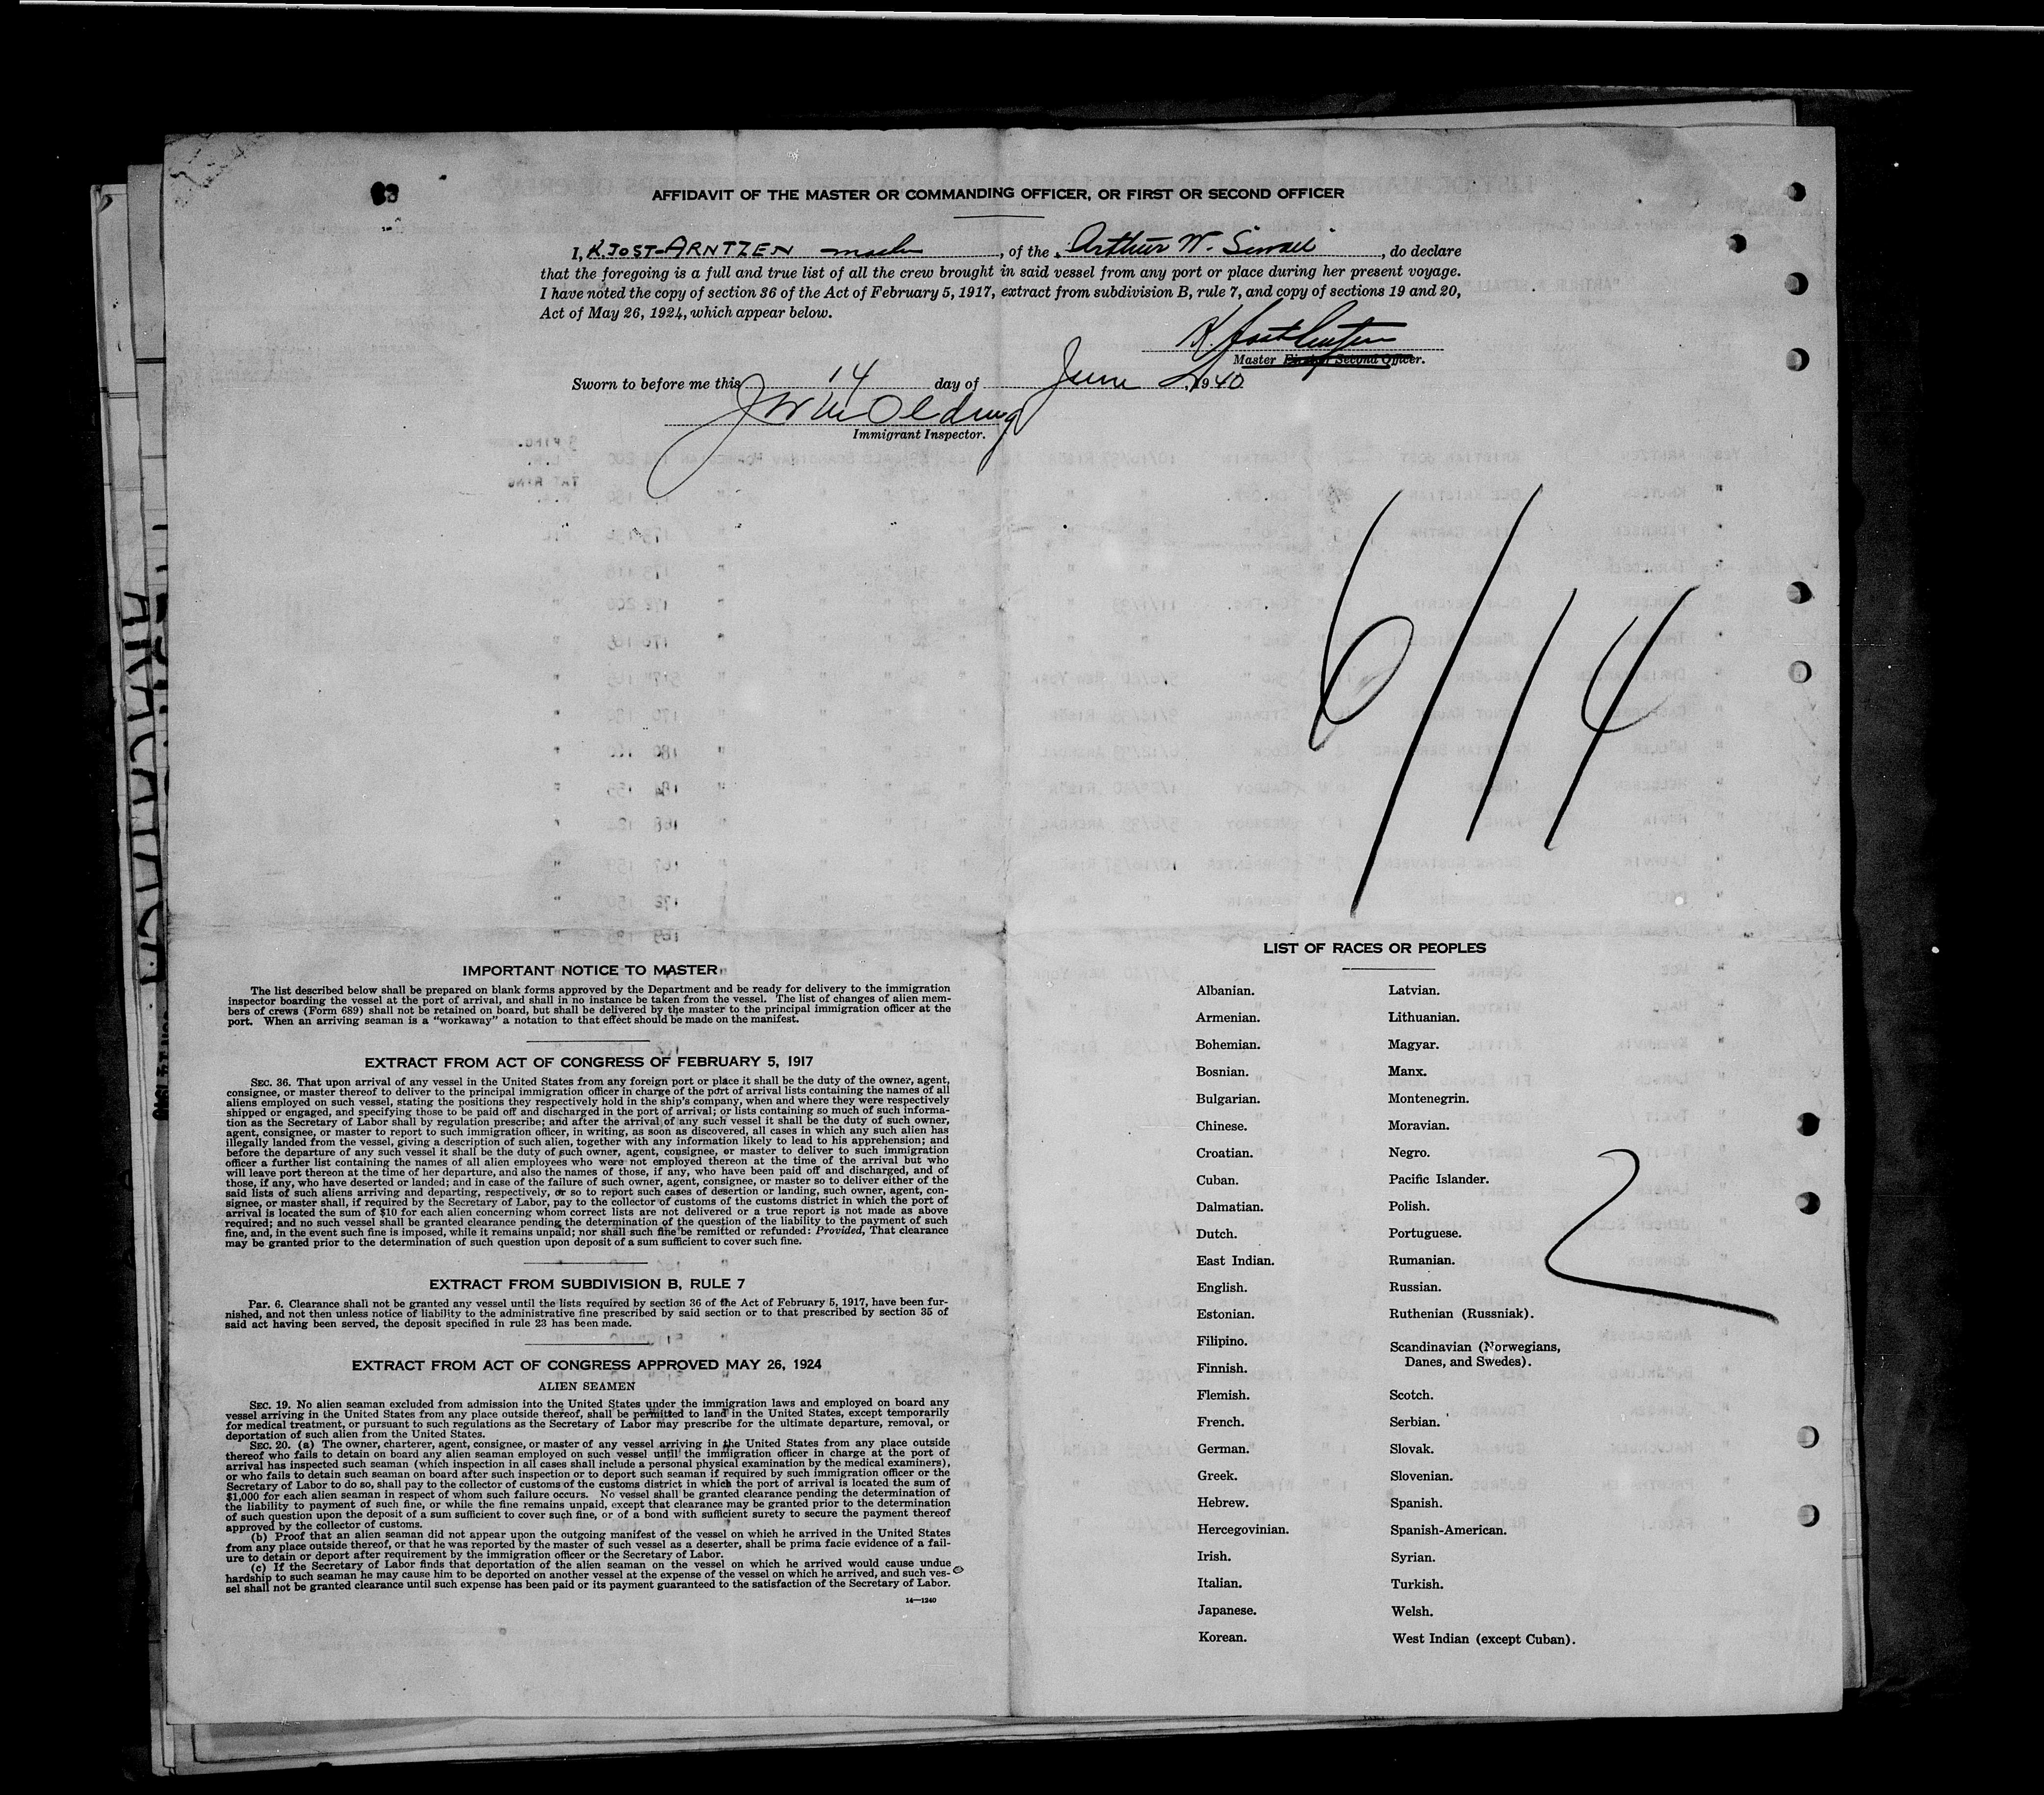 AFFIDAVIT OF THE MASTER OR COMMANDING OFFICER, OR FIRST OR SECOND OFFICER
I, K. JOST-ARNTZEN master, of the Arthur W. Sewall, do declare
that the foregoing is a full and true list of all the crew brought in said vessel from any port or place during her present voyage.
I have noted the copy of section 36 of the Act of February 5, 1917, extract from subdivision B, rule 7, and copy of sections 19 and 20,
Act of May 26, 1924, which appear below.
Master First or Second Officer.
Sworn to before me this 14 day of June, 1940
Immigrant Inspector.
6/14
IMPORTANT NOTICE TO MASTER
The list described below shall be prepared on blank forms approved by the Department and be ready for delivery to the immigration
inspector boarding the vessel at the port of arrival, and shall in no instance be taken from the vessel. The list of changes of alien mem-
bers of crews (Form 689) shall not be retained on board, but shall be delivered by the master to the principal immigration officer at the
port. When an arriving seaman is a "workaway" a notation to that effect should be made on the manifest.
EXTRACT FROM ACT OF CONGRESS OF FEBRUARY 5, 1917
SEC. 36. That upon arrival of any vessel in the United States from any foreign port or place it shall be the duty of the owner, agent,
consignee, or master thereof to deliver to the principal immigration officer in charge of the port of arrival lists containing the names of all
aliens employed on such vessel, stating the positions they respectively hold in the ship's company, when and where they were respectively
shipped or engaged, and specifying those to be paid off and discharged in the port of arrival; or lists containing so much of such informa-
tion as the Secretary of Labor shall by regulation prescribe; and after the arrival of any such vessel it shall be the duty of such owner,
agent, consignee, or master to report to such immigration officer, in writing, as soon as discovered, all cases in which any such alien has
illegally landed from the vessel, giving a description of such alien, together with any information likely to lead to his apprehension; and
before the departure of any such vessel it shall be the duty of such owner, agent, consignee, or master to deliver to such immigration
officer a further list containing the names of all alien employees who were not employed thereon at the time of the arrival but who
will leave port thereon at the time of her departure, and also the names of those, if any, who have been paid off and discharged, and of
those, if any, who have deserted or landed; and in case of the failure of such owner, agent, consignee, or master so to deliver either of the
said lists of such aliens arriving and departing, respectively, or so to report such cases of desertion or landing, such owner, agent, con-
signee, or master shall, if required by the Secretary of Labor, pay to the collector of customs of the customs district in which the port of
arrival is located the sum of $10 for each alien concerning whom correct lists are not delivered or a true report is not made as above
required; and no such vessel shall be granted clearance pending the determination of the question of the liability to the payment of such
fine, and, in the event such fine is imposed, while it remains unpaid; nor shall such fine be remitted or refunded: Provided, That clearance
may be granted prior to the determination of such question upon deposit of a sum sufficient to cover such fine.
EXTRACT FROM SUBDIVISION B, RULE 7
Par. 6. Clearance shall not be granted any vessel until the lists required by section 36 of the Act of February 5, 1917, have been fur-
nished, and not then unless notice of liability to the administrative fine prescribed by said section or to that prescribed by section 35 of
said act having been served, the deposit specified in rule 23 has been made.
EXTRACT FROM ACT OF CONGRESS APPROVED MAY 26, 1924
ALIEN SEAMEN
SEC. 19. No alien seaman excluded from admission into the United States under the immigration laws and employed on board any
vessel arriving in the United States from any place outside thereof, shall be permitted to land in the United States, except temporarily
for medical treatment, or pursuant to such regulations as the Secretary of Labor may prescribe for the ultimate departure, removal, or
deportation of such alien from the United States.
SEC. 20. (a) The owner, charterer, agent, consignee, or master of any vessel arriving in the United States from any place outside
thereof who fails to detain on board any alien seaman employed on such vessel until the immigration officer in charge at the port of
arrival has inspected such seaman (which inspection in all cases shall include a personal physical examination by the medical examiners),
or who fails to detain such seaman on board after such inspection or to deport such seaman if required by such immigration officer or the
Secretary of Labor to do so, shall pay to the collector of customs of the customs district in which the port of arrival is located the sum of
$1,000 for each alien seaman in respect of whom such failure occurs. No vessel shall be granted clearance pending the determination of
the liability to payment of such fine, or while the fine remains unpaid, except that clearance may be granted prior to the determination
of such question upon the deposit of a sum sufficient to cover such fine, or of a bond with sufficient surety to secure the payment thereof
approved by the collector of customs.
(b) Proof that an alien seaman did not appear upon the outgoing manifest of the vessel on which he arrived in the United States
from any place outside thereof, or that he was reported by the master of such vessel as a deserter, shall be prima facie evidence of a fail-
ure to detain or deport after requirement by the immigration officer or the Secretary of Labor.
(c) If the Secretary of Labor finds that deportation of the alien seaman on the vessel on which he arrived would cause undue
hardship to such seaman he may cause him to be deported on another vessel at the expense of the vessel on which he arrived, and such ves-
sel shall not be granted clearance until such expense has been paid or its payment guaranteed to the satisfaction of the Secretary of Labor.
14—1240
LIST OF RACES OR PEOPLES
Albanian.
Armenian.
Bohemian.
Bosnian.
Bulgarian.
Chinese.
Croatian.
Cuban.
Dalmatian.
Dutch.
East Indian.
English.
Estonian.
Filipino.
Finnish.
Flemish.
French.
German.
Greek.
Hebrew.
Hercegovinian.
Irish.
Italian.
Japanese.
Korean.
Latvian.
Lithuanian.
Magyar.
Manx.
Montenegrin.
Moravian.
Negro.
Pacific Islander.
Polish.
Portuguese.
Rumanian.
Russian.
Ruthenian (Russniak).
Scandinavian (Norwegians,
Danes, and Swedes).
Scotch.
Serbian.
Slovak.
Slovenian.
Spanish.
Spanish-American.
Syrian.
Turkish.
Welsh.
West Indian (except Cuban).
2